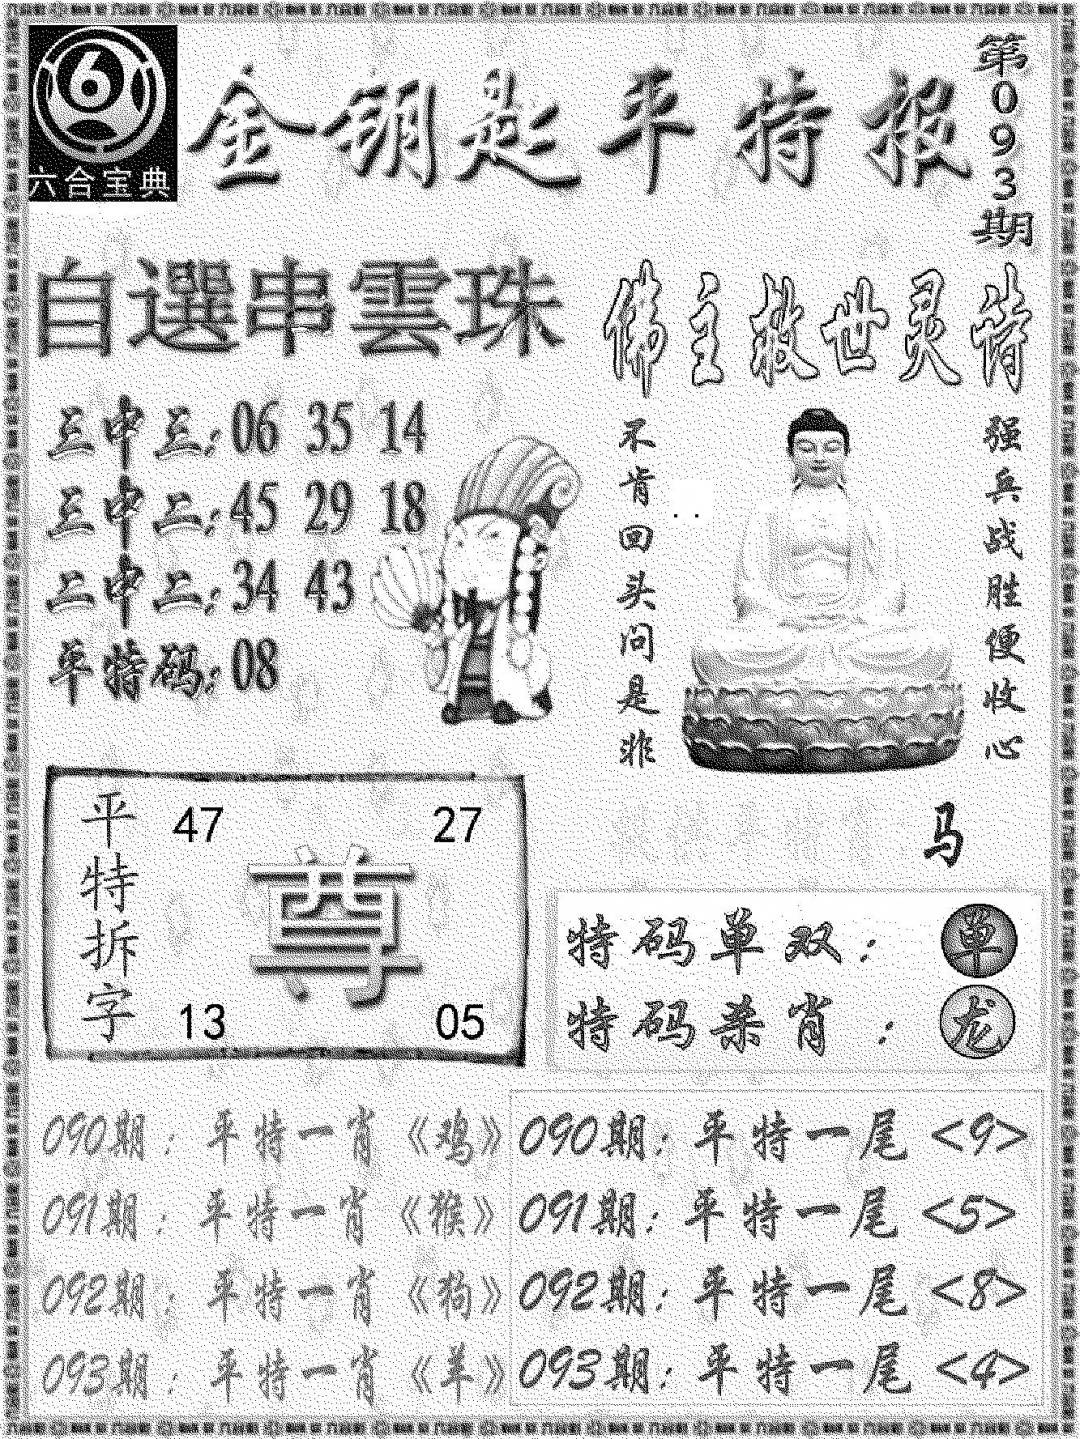 6
六合宝典
金钥匙平特报
第093期
自選串雲珠
佛主救世灵诗
三中三：06 35 14
三中二：45 29 18
二中二：34 43
单特码：08
强兵战胜便收心
不肯回头问是非
马
平特拆字
47 27
尊
13 05
特码单双：单
特码杀肖：龙
090期：平特一肖《鸡》
091期：平特一肖《猴》
092期：平特一肖《狗》
093期：平特一肖《羊》
090期：平特一尾<9>
091期：平特一尾<5>
092期：平特一尾<8>
093期：平特一尾<4>